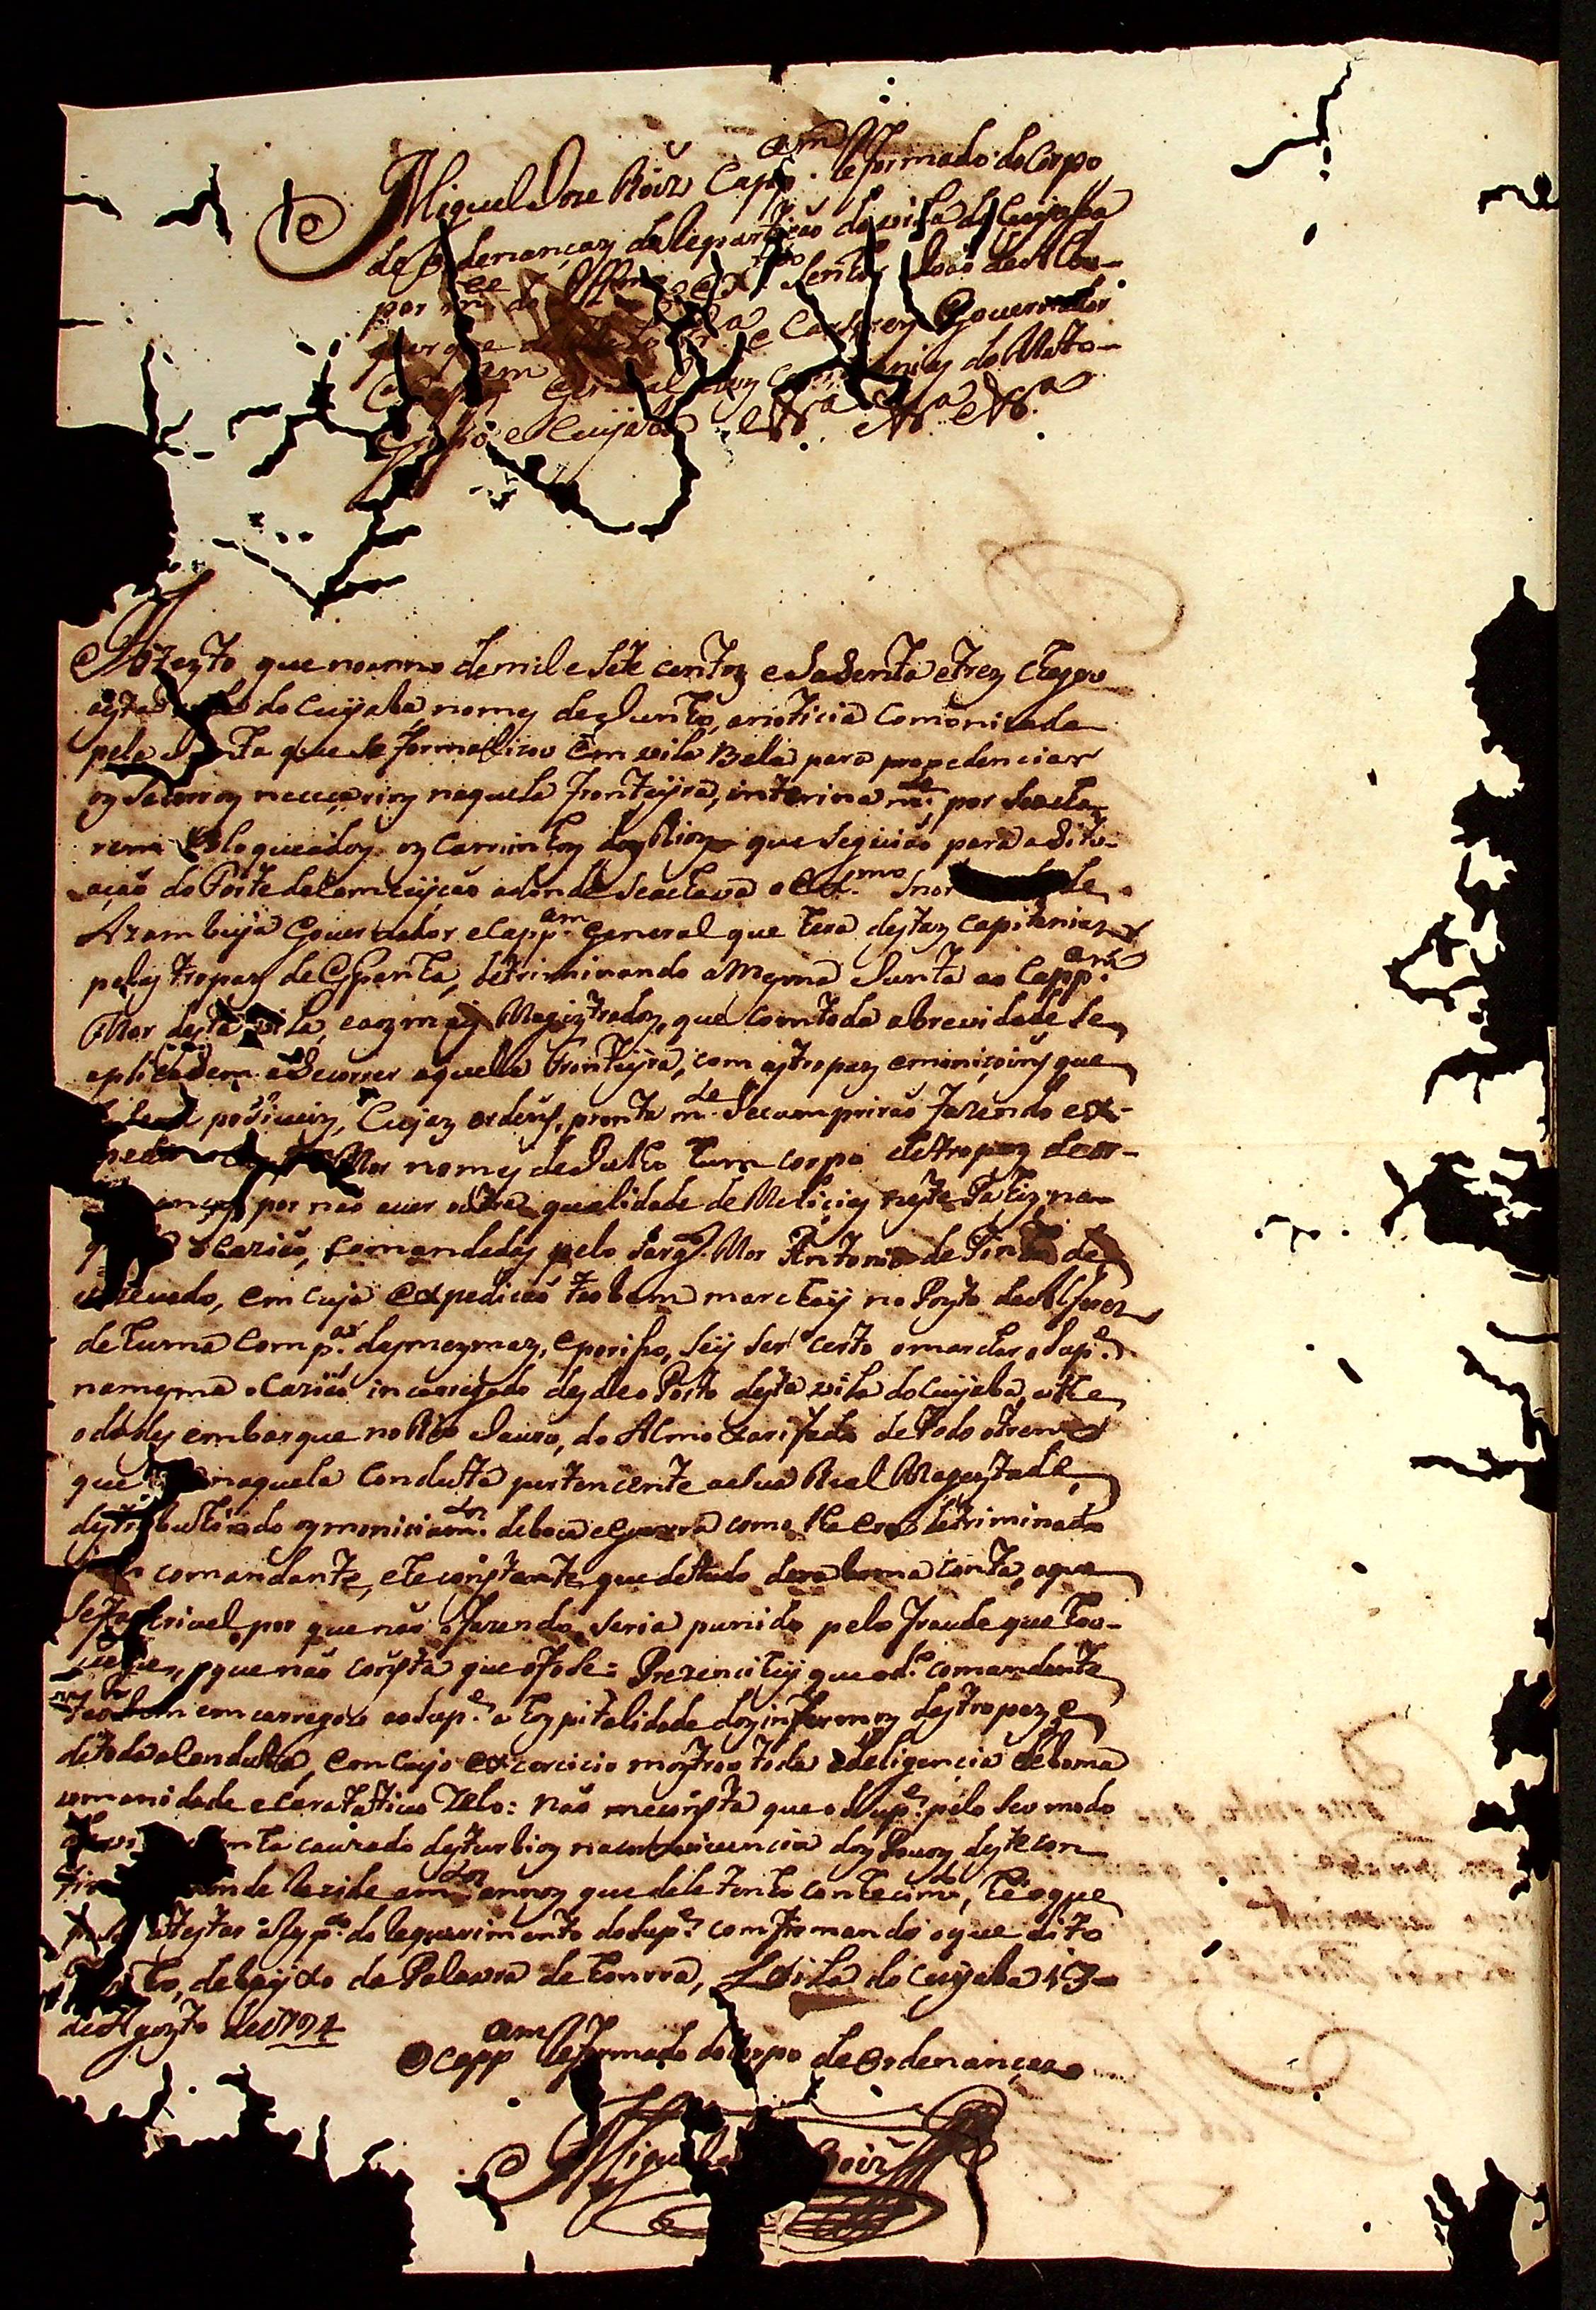 Miguel Joze Roiz Capp.am Reformado do Corpo
de Ordenanças da Repartição da vila do Cuyaba
por m.ce do Illmo e Ex.mo Senhor João de Albu-
querque de Mello Pr.a e Caseres Governador
e Capp.am General das Capitanias do Mato-
Groço e Cuyaba e V.a e V.a e V.a
Atezto que no anno de mil e sete centoz e saSenta e trez chegou
a esta vila do Cuyaba, no mes de Junho, a noticia comonicada
pela Junta que se formalizou em vila Bela para propedenciar
os Secorros neceçarios naquela fronteyra, interinam.te por se acha-
rem Bloqueados os Caminhos dos Rios que seguião para a Situ-
ação do Forte da Comceyção adonde se achava o Ex.mo Snor de
Azambuja Governador e Capp.am General que hera destas Capitanias
pelas tropas de Espanha, detriminando a Mesma Junta ao Capp.am
Mor desta vila, e aos mais Magiztrados, que com toda a brevidade se
aplicaSem a Secorrer aquella Fronteyra, com as tropas e moniçoins que
poSiveis, Cujas ordens, pronta m.te Se cumprirão fazendo ex-
pedir Mor no mes de Julho hum corpo de tropas de or-
anças por não aver outra qualidade de Meliçias neste Pahiz na-
ocazião, comandadas pelo Sarg.to Mor Antonio de Pinho de
azevedo, em cuja expedicão tãobem marchey no Pozto de Alferes
de huma Comp.a das mezmas, e por iSo, sey ser certo o marchar o Sup.e
na mesma ocazião incarregado desde o Porto desta vila do Cuyaba, athe
o do desembarque no Rio Jauru, do Almoxarifado de todo o trem
que naquela Conduta pertencente a Sua Real Magestade,
destribuhindo os moniciam.tos de boca e guerra como lhe era detriminado
comandante, e he constante que de tudo dera boma conta, o que
se fas crivel por que não o fazendo, seria punido pelo fraude que hou-
veçe, o que não consta que o foSe: Prezenciey que o d.o comandante
tãobem emcarregou ao Sup.e a hospitalidade dos infermos das tropas e
de toda a Conduta, em cujo exercicio mostrou toda a deligençia de boma
omanidade e caratativo Zelo: não me consta que o Sup.e pelo seu modo
cauzado desturbios na convivencia dos Povos deste con
onde Rezide am.tos annos que dele tenho conhecim.to, he o que
atestar a Resp.to do Requerimento do Sup.e comfirmando o que dito
tenho, debayxo de Palavra de honrra, vila do Cuyaba 13
de Agosto de 1794
O Capp.am Reformado do Corpo de Ordenanças
Miguel Roiz